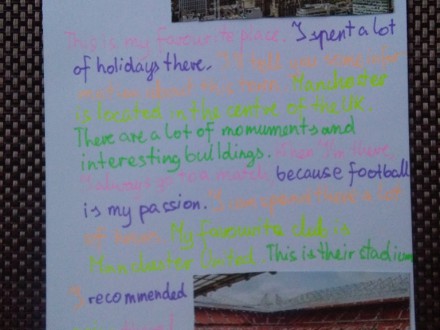 This is my favourite place. I spent a lot
of holidays there. I'll tell you some infor
mation about this town. Manchester
is located in the centre of the UK.
There are a lot of momuments and
interesting buildings. When I'm there,
I always go to a match, because football
is my passion. I can spend there a lot
of hours. My favourite club is
Manchester United. This is their stadium
I recommended